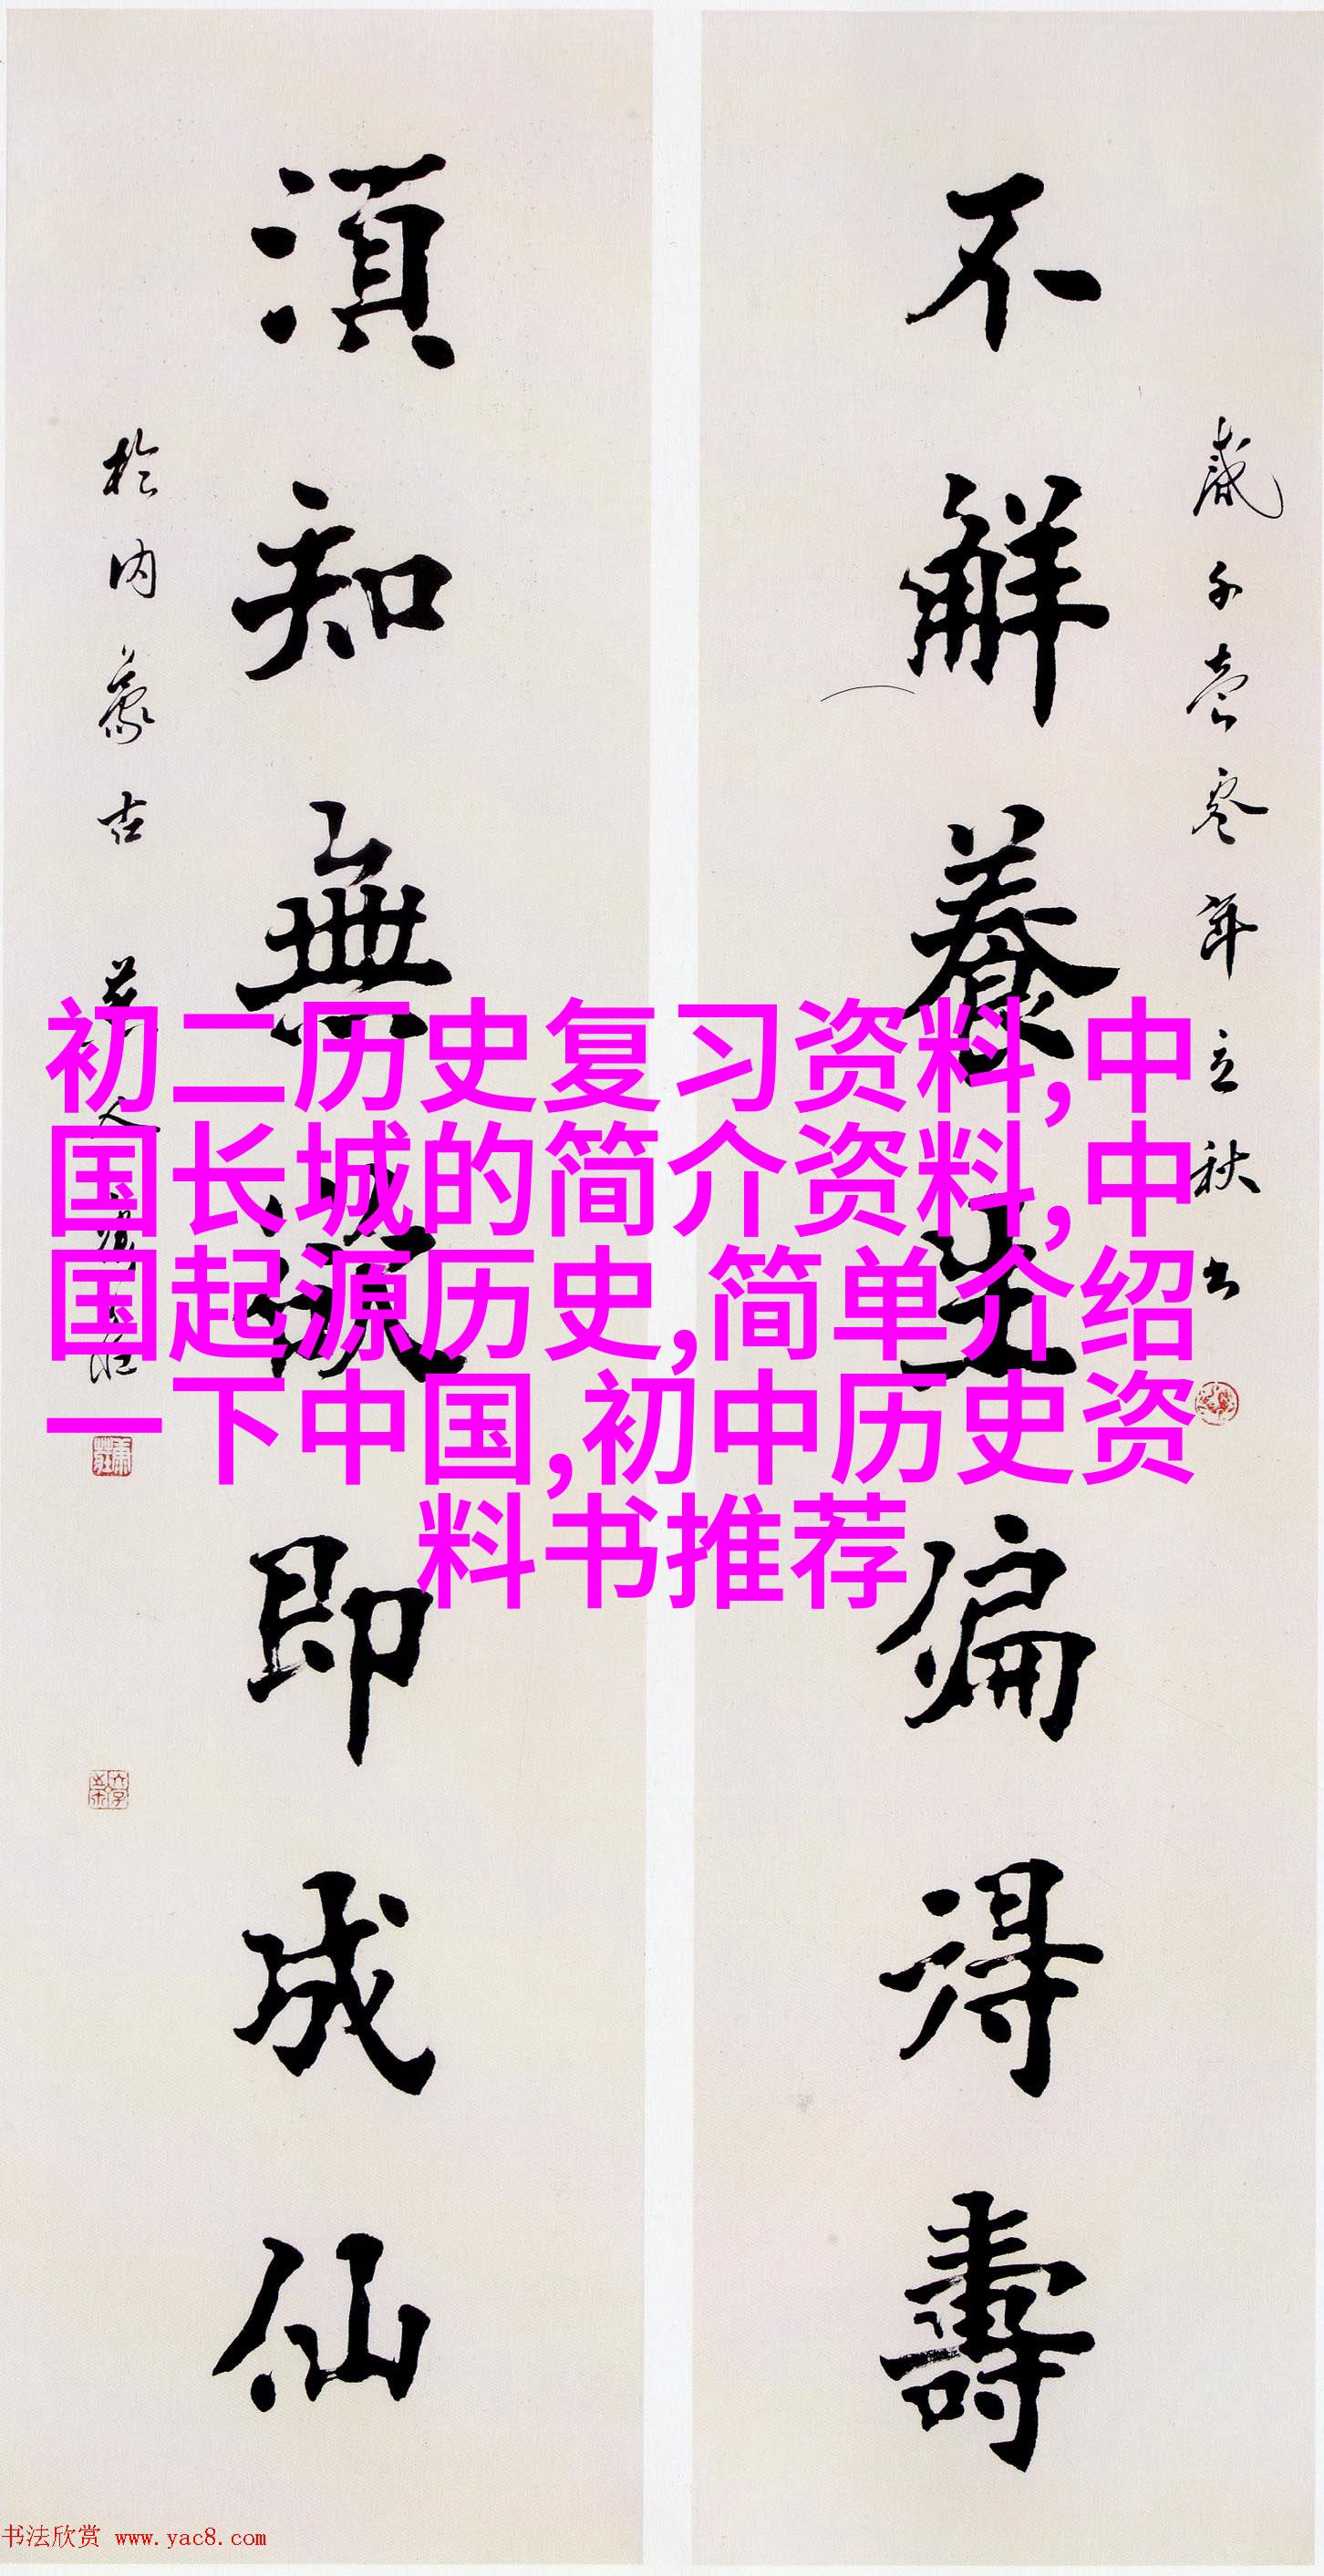 不解養生偏得壽
須知無欲即成仙
歲千壹零年立秋書
於内蒙古
初二历史复习资料,中
国长城的简介资料,中
国起源历史,简单介绍
一下中国,初中历史资
料书推荐
书法欣赏 www.yac8.com